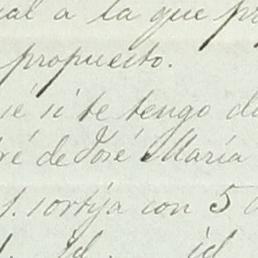 ual a la que pr
propuesto.
ié si te tengo d
ré de José María
1. sortija con 5
id